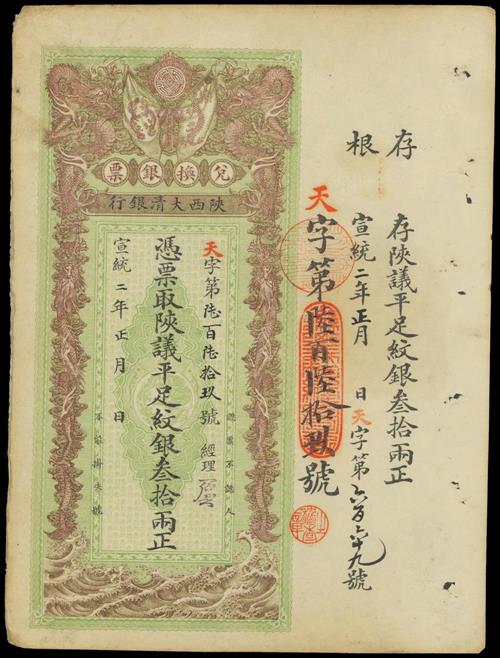 存根
存陝議平足紋銀叁拾兩正
宣統二年正月 日天字第六百六十九號
天字第陸百陸拾玖號
兌換銀票
陝西大清銀行
天字第陸百陸拾玖號 經理
認票不認人
憑票取陝議平足紋銀叁拾兩正
宣統二年正月 日
不能掛失號